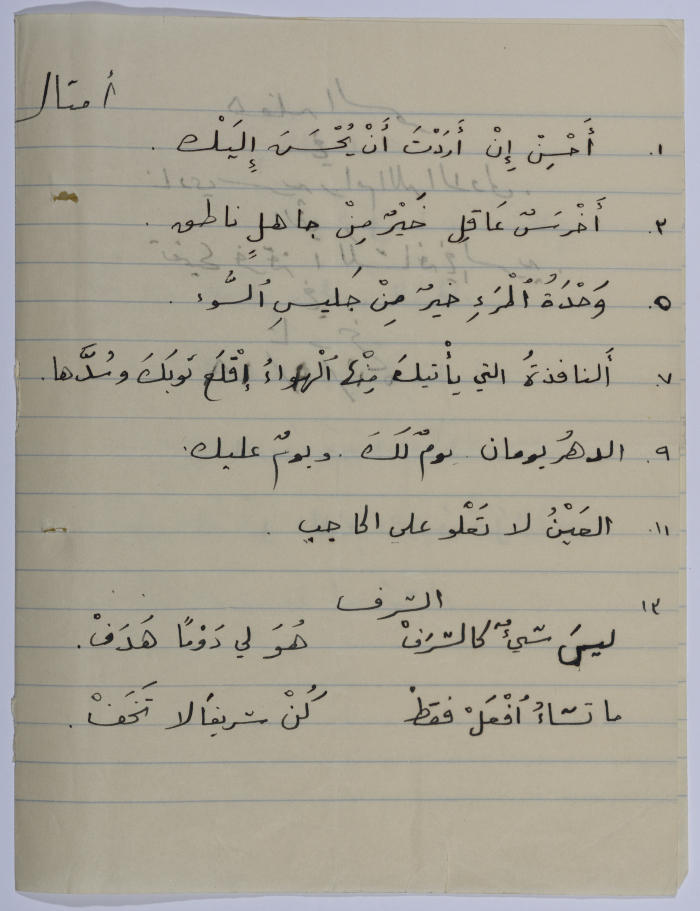 أمثال
١. أَحْسِنْ إِنْ أَرَدْتَ أَنْ يُحْسَنَ إِلَيْك .
٣. أَخْرَسٌ عَاقِل خَيْرٌ مِنْ جاهلٍ ناطق .
٥. وَحْدَةُ ٱلْمَرْءِ خيرٌ مِنْ جَليسِ ٱلسُّوء .
٧. أَلنافذةُ التي يأْتيكَ مِنْها ٱلْهواءُ إِقْلَعْ ثوبَكَ وسُدَّها .
٩. الدهرُ يومان . يومٌ لَكَ . ويومٌ عليك .
١١. العَيْنُ لا تَعْلو على الحاجب .
١٣ الشرف
ليسَ شيءٌ كالشرَفْ هُوَ لي دَوْمًا هَدَفْ .
ما تشاءُ ٱفْعَلْ فقطْ كُنْ شريفًا لا تَخَفْ .